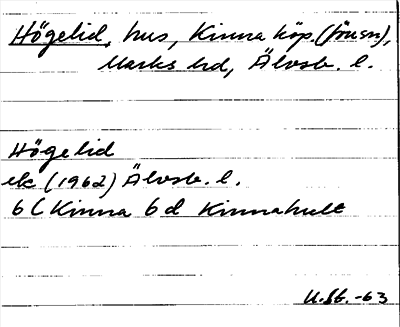 Högelid, hus, Kinna köp. (försn),
Marks hd, Älvsb. l.
Högelid
ek (1962) Älvsb. l.
6 C Kinna 6 d Kinnahult
U.St. -63